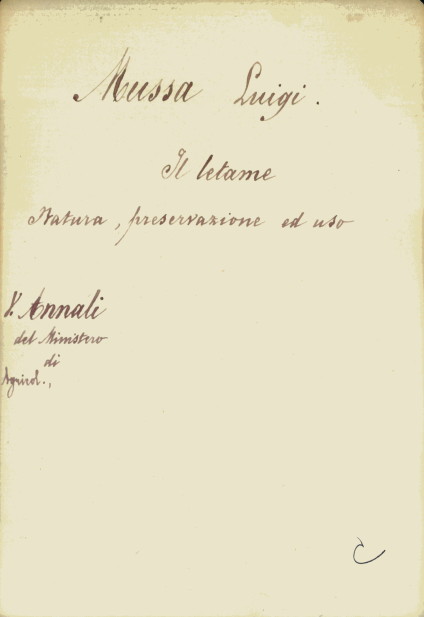 Mussa Luigi.
Il letame
Natura, preservazione ed uso
V. Annali
del Ministero
di
Agricol.,
C